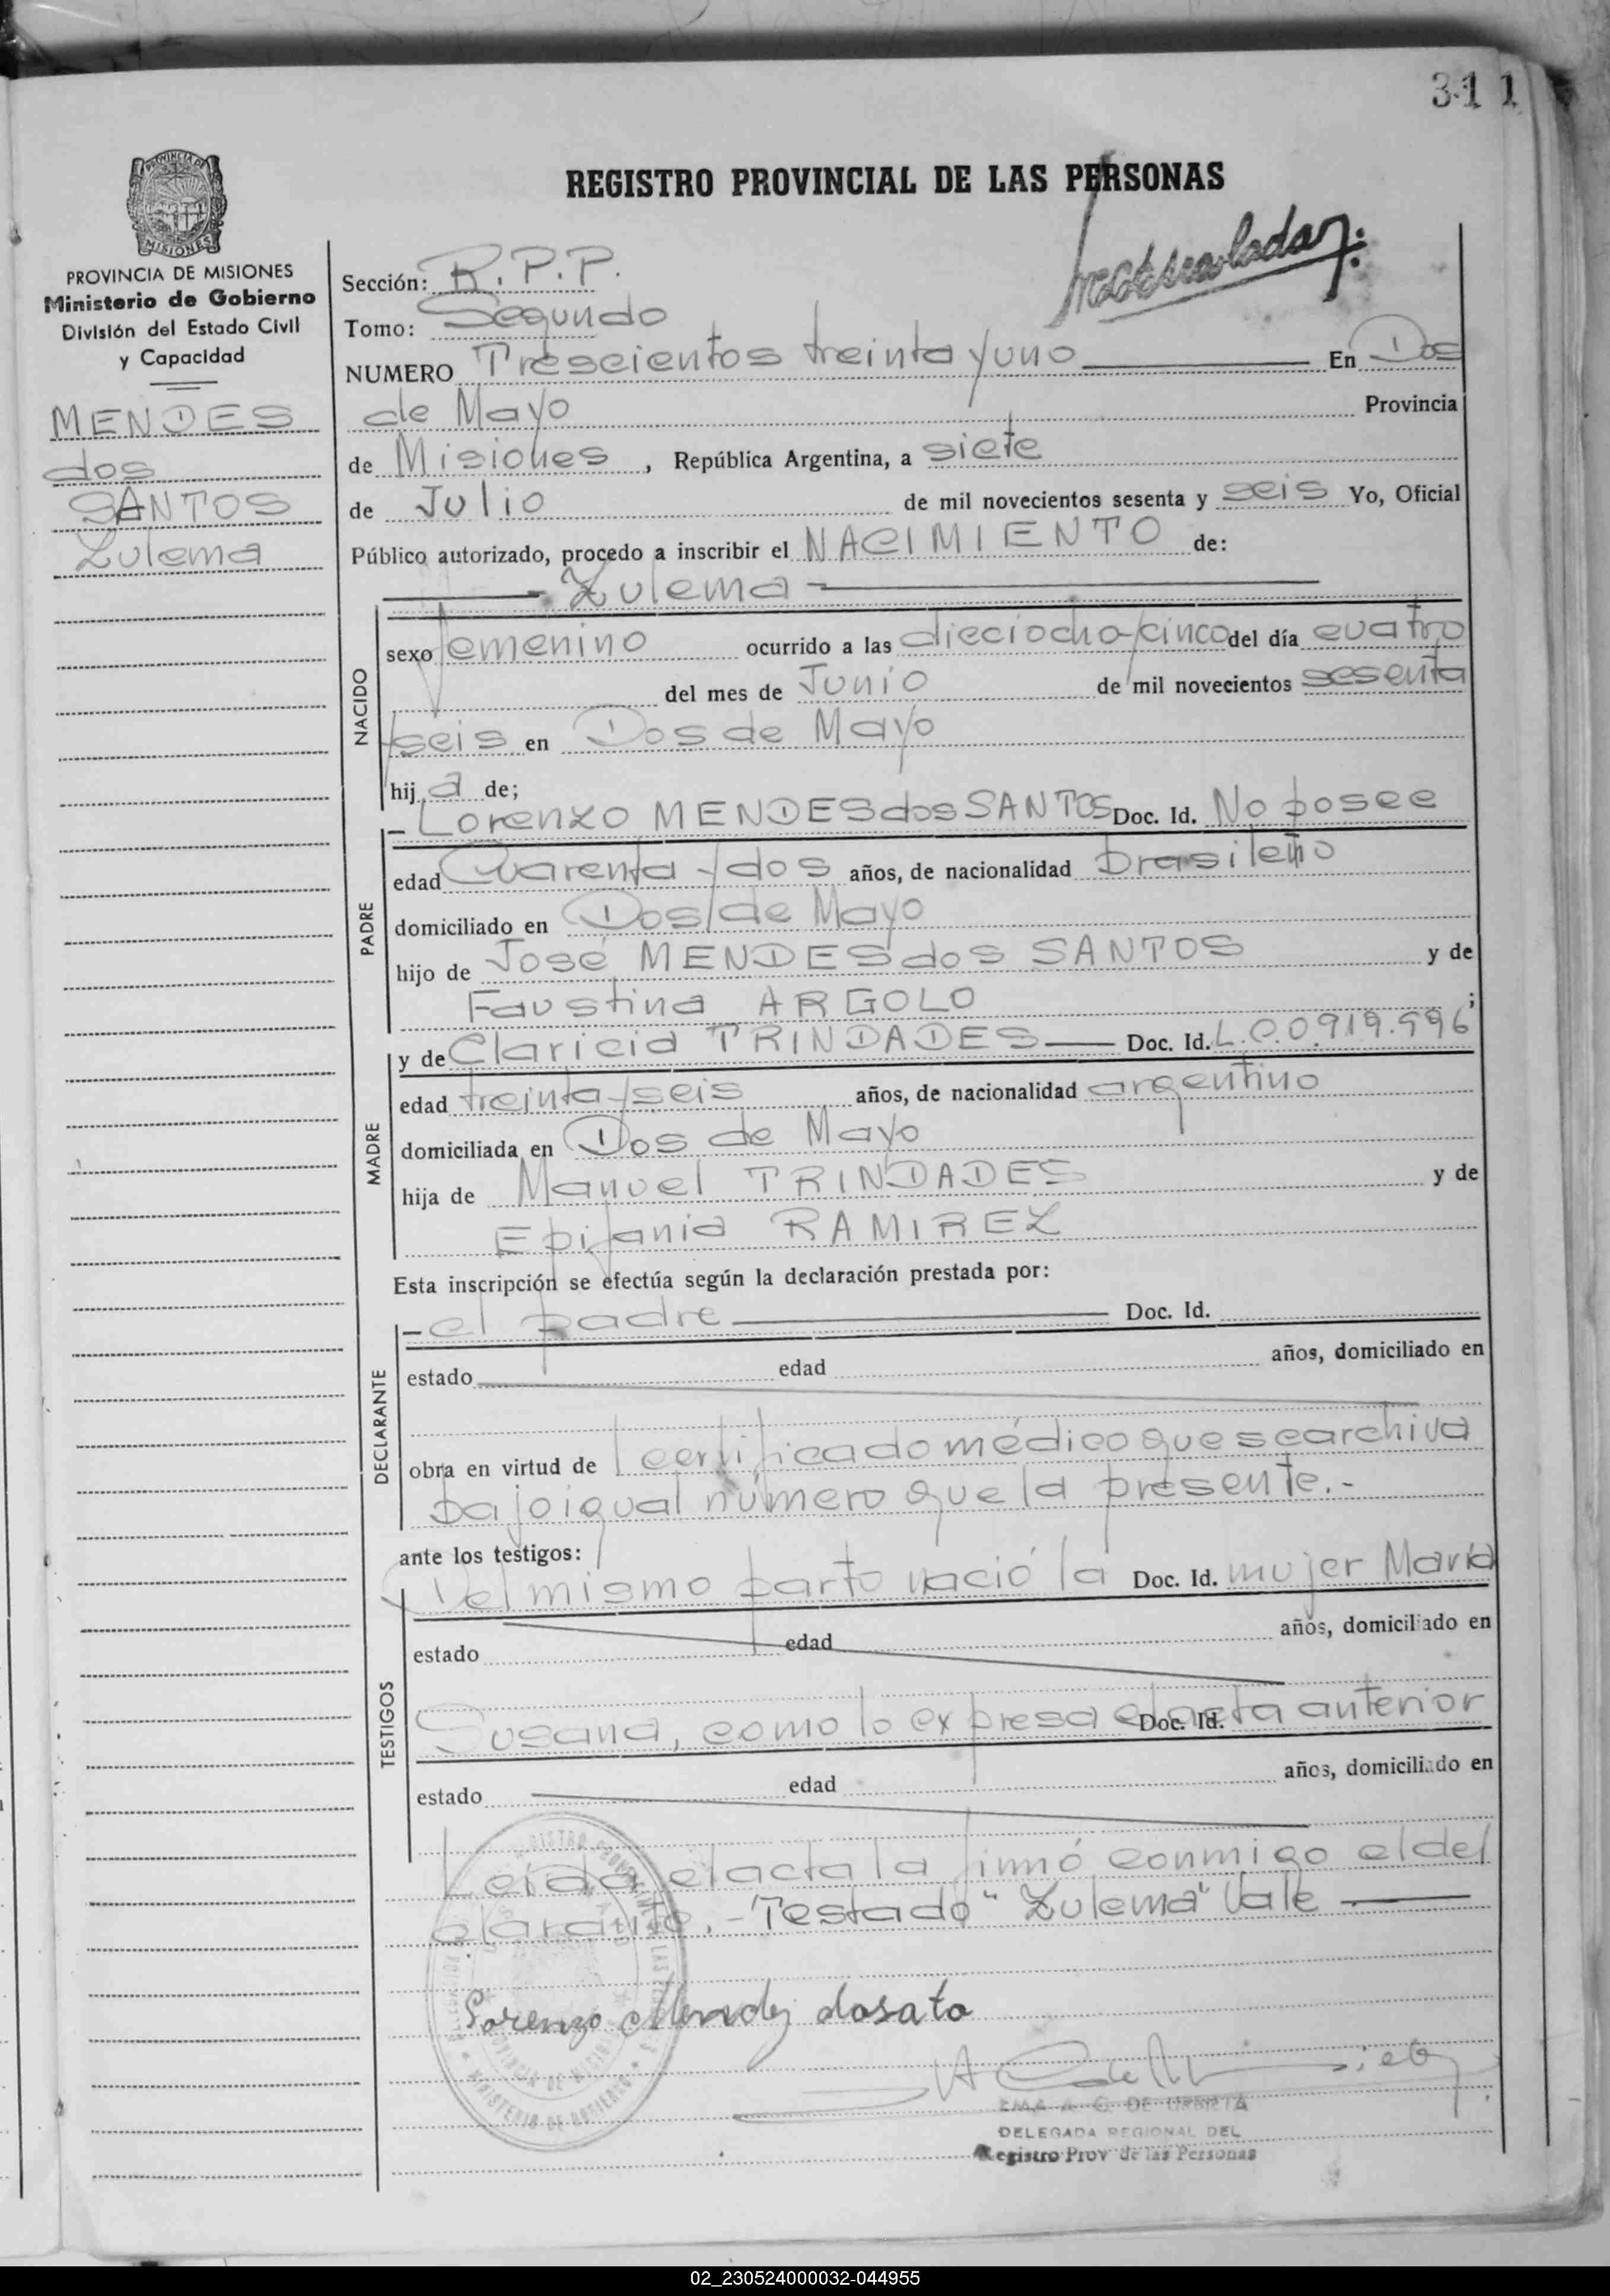 311
REGISTRO PROVINCIAL DE LAS PERSONAS
PROVINCIA DE MISIONES
Ministerio de Gobierno
División del Estado Civil
y Capacidad
MENDES
dos
SANTOS
Zulema
Sección: R.P.P.
Tomo: Segundo
NUMERO Trescientos treinta y uno En Dos
de Mayo Provincia
de Misiones, República Argentina, a siete
de Julio de mil novecientos sesenta y seis Yo, Oficial
Público autorizado, procedo a inscribir el NACIMIENTO de:
Zulema
NACIDO
sexo femenino ocurrido a las dieciocho y cinco del día cuatro
del mes de Junio de mil novecientos sesenta
y seis en Dos de Mayo
hija de;
PADRE
Lorenzo MENDES dos SANTOS Doc. Id. No posee
edad Cuarenta y dos años, de nacionalidad brasileño
domiciliado en Dos de Mayo
hijo de José MENDES dos SANTOS y de
Faustina ARGOLO ;
MADRE
y de Claricia TRINDADES Doc. Id. L.C.0.919.996
edad treinta y seis años, de nacionalidad argentino
domiciliada en Dos de Mayo
hija de Manuel TRINDADES y de
Epifania RAMIREZ
Esta inscripción se efectúa según la declaración prestada por:
DECLARANTE
- el padre Doc. Id.
estado edad años, domiciliado en
obra en virtud de l certificado médico que se archiva
bajo igual número que la presente.-
ante los testigos:
TESTIGOS
Del mismo parto nació la Doc. Id. mujer María
estado edad años, domiciliado en
Susana, como lo expresa el acta anterior Doc. Id.
estado edad años, domiciliado en
Leída el acta la firmó conmigo el del
clarante.- Testado "Zulema" Vale
Lorenzo Mendez dosato
EMA A. C. DE URRETA
DELEGADA REGIONAL DEL
Registro Prov de las Personas
MINISTERIO DE GOBIERNO
02_230524000032-044955